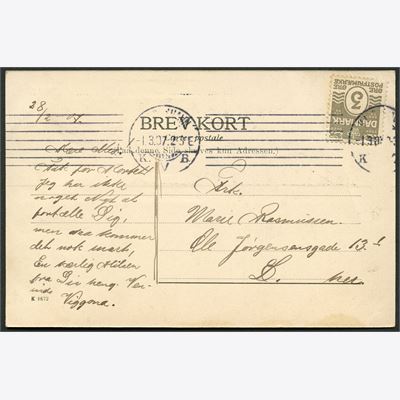 BREV-KORT
Carte postale
(Paa denne Side skrives kun Adressen.)
DANMARK
3
ØRE
POSTFRIMÆRKE
1.3.07. 2-3 E
K. B.
28/2 07.
Kære Marie
Tak for Kortet
jeg har ikke
noget Nyt at
fortælle Dig,
men det kommer
det nok snart,
En kærlig Hilsen
fra Din heng. Ven-
inde Viggona.
Frk.
Marie Rasmussen
Ole Jørgensensgade 13
K 1672